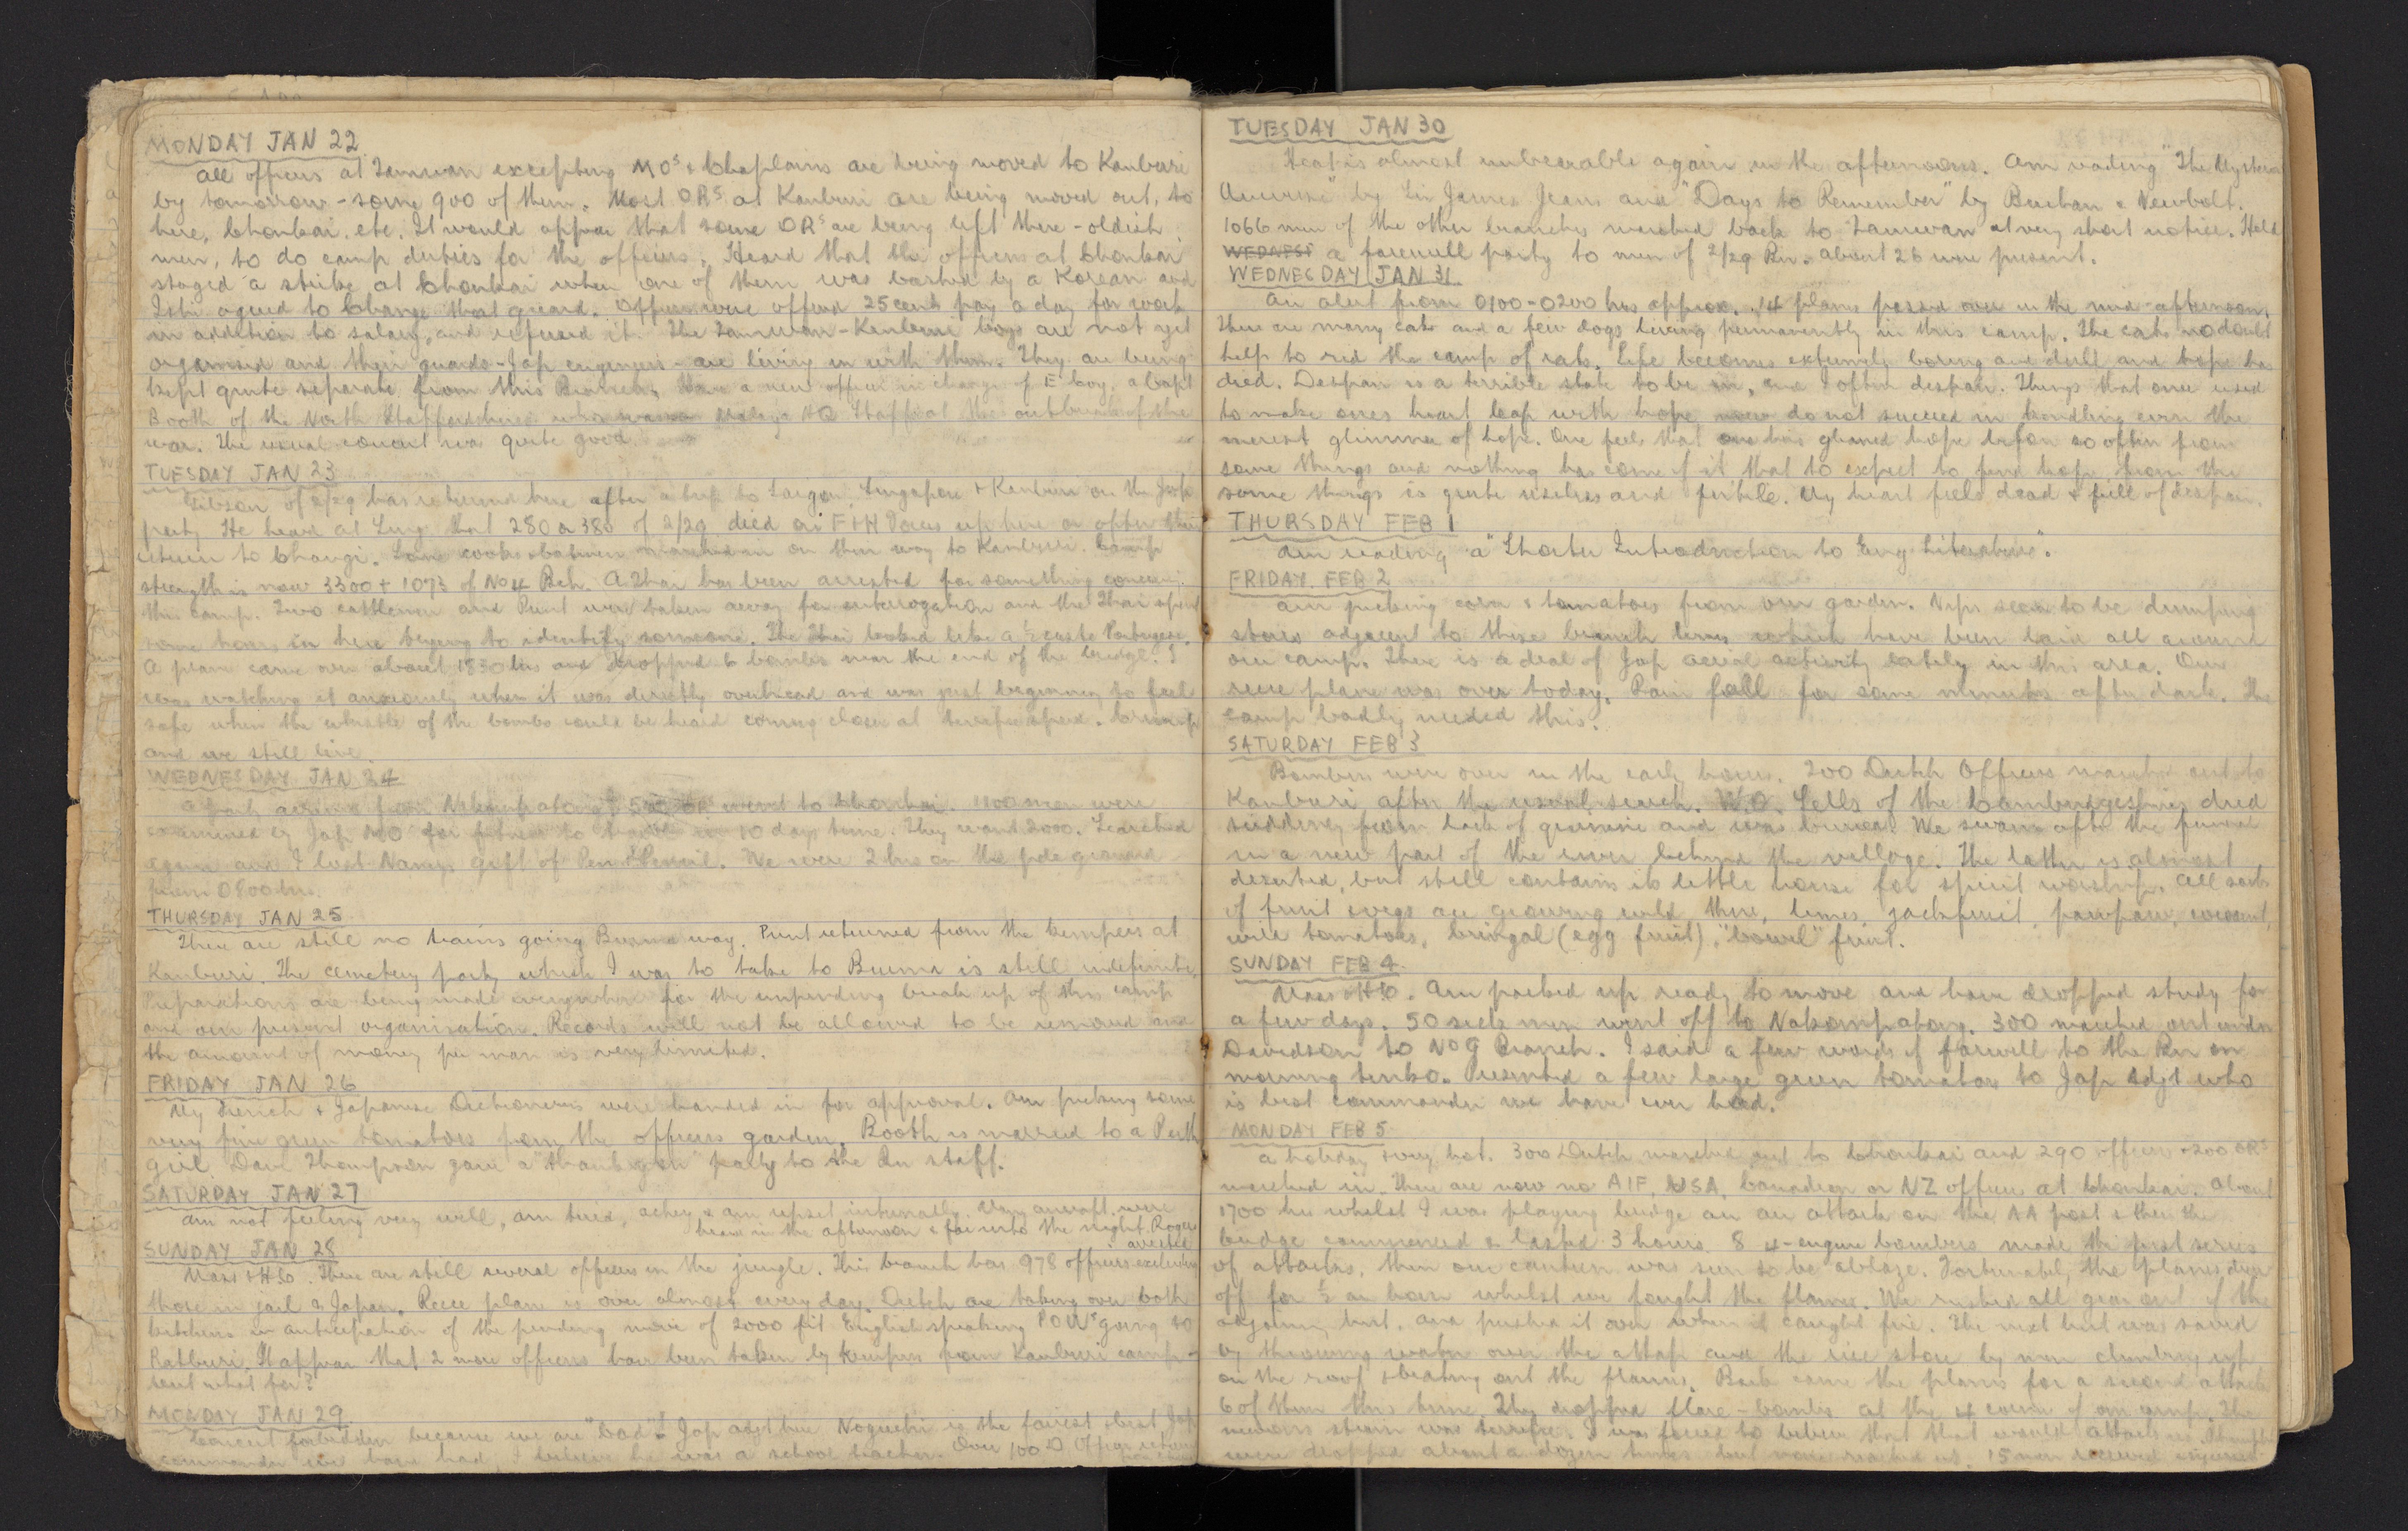 MONDAY JAN 22
All officers at Tamuan excepting MOs & Chaplains are being moved to Kanburi
by tomorrow - some 900 of them. Most ORs at Kanburi are being moved out, to
here, Chonkai etc. It would appear that some ORs are being left there - oldish
men, to do camp duties for the officers. Heard that the officers at Chonkai
staged a strike at Chonkai when one of them was bashed by a Korean and
Ishi agreed to change that guard. Officers were offered 25 cents pay a day for work
in addition to salary, and refused it. The Tamuan - Kanburi boys are not yet
organised and their guards - Jap engineers - are living in with them. They are being
kept quite separate from this Branch. Have a new officer in charge of E Coy, a Capt
Booth of the North Staffordshires who was on Malaya HQ Staff at the outbreak of the
war. The usual concert was quite good.
TUESDAY JAN 23
Gibson of 2/29 has returned here after a trip to Saigon, Singapore & Kanburi on the Jap
party. He heard at Sing. that 280 or 380 of 2/29 died on F & H Forces up here or after their
return to Changi. Some cooks & batmen marched in on their way to Kanburi. Camp
strength is now 3300 + 1073 of No 4 Bch. A Thai has been arrested for something concerning
this camp. Two cattlemen and Punt were taken away for interrogation and the Thai spent
some hours in here trying to identify someone. The Thai looked like a ½ caste Portugese.
A plane came over about 1830 hrs and dropped 6 bombs near the end of the bridge. I
was watching it anxiously when it was directly overhead and was just beginning to feel
safe when the whistle of the bombs could be heard coming closer at terrific speed. Crump
and we still live.
WEDNESDAY JAN 24
A party arrived from Nakompatong & 500 ORs went to Chonkai. 1100 men were
examined by Jap MO for fitness to travel in 10 days time. They want 2000. Searched
again and I lost Nancy's gift of Pen & Pencil. We were 2 hrs on the pde ground
from 0800 hrs.
THURSDAY JAN 25
There are still no trains going Burma way. Punt returned from the kempeis at
Kanburi. The cemetery party which I was to take to Burma is still indefinite.
Preparations are being made everywhere for the impending break up of this camp
and our present organisation. Records will not be allowed to be removed and
the amount of money per man is very limited.
FRIDAY JAN 26
My French & Japanese Dictionaries were handed in for approval. Am picking some
very fine green tomatoes from the officers garden. Booth is married to a Perth
girl. Dave Thompson gave a "thanksgiven" party to the Bn staff.
SATURDAY JAN 27
Am not feeling very well, am tired, achey & am upset internally. Many aircraft were
heard in the afternoon & far into the night. Rogers
arrested
SUNDAY JAN 28
Mass & HSo. There are still several officers in the jungle. This branch has 978 officers excluding
those in jail & Japan. Recce plane is over almost every day. Dutch are taking over both
kitchens in anticipation of the pending move of 2000 fit English speaking POWs going to
Ratburi. It appears that 2 more officers have been taken by Kempeis from Kanburi camp -
what for?
MONDAY JAN 29
Concert forbidden because we are "bad"! Jap adjt here Noguchi is the fairest & best Jap
commander we have had. I believe he was a school teacher. Over 100 D Officers return
TUESDAY JAN 30
Heat is almost unbearable again in the afternoons. Am reading "The Mysterious
Universe" by Sir James Jeans and "Days to Remember" by Buchan & Newbolt.
1066 men of the other branches marched back to Tamuan at very short notice. Held
a farewell party to men of 2/29 Bn. about 26 were present.
WEDNESDAY JAN 31
An alert from 0100-0200 hrs approx. 14 planes passed over in the mid-afternoon.
There are many cats and a few dogs living permanently in this camp. The cats no doubt
help to rid the camp of rats. Life becomes extremely boring and dull and hope has
died. Despair is a terrible state to be in, and I often despair. Things that once used
to make ones heart leap with hope now do not succeed in kindling even the
merest glimmer of hope. One feels that one has gleaned hope before so often from
same things and nothing has come of it that to expect to find hope from the
same things is quite useless and futile. My heart feels dead & full of despair.
THURSDAY FEB 1
Am reading a "Shorter Introduction to Eng Literature".
FRIDAY FEB 2
Am picking corn & tomatoes from our garden. Nips seem to be dumping
stores adjacent to these branch lines which have been laid all around
our camp. There is a deal of Jap aerial activity lately in this area. Our
recce plane was over today. Rain fell for some minutes after dark. The
camp badly needed this.
SATURDAY FEB 3
Bombers were over in the early hours. 200 Dutch Officers marched out to
Kanburi after the usual search. W.O. Sells of the Cambridgeshires died
suddenly from lack of quinine and was buried. We swam after the funeral
in a new part of the river behind the village. The latter is almost
deserted, but still contains its little house for spirit worship. All sorts
of fruit & vegs are growing wild there, limes, jackfruit, pawpaw, coconut,
wild tomatoes, bringal (egg fruit), "bowel" fruit.
SUNDAY FEB 4
Mass & HSo. Am packed up ready to move and have dropped study for
a few days. 50 sick men went off to Nakompatong. 300 marched out under
Davidson to No 9 Branch. I said a few words of farewell to the Bn on
morning tenko. Presented a few large green tomatoes to Jap Adjt who
is best commander we have ever had.
MONDAY FEB 5
A holiday & very hot. 300 Dutch marched out to Chonkai and 290 officers & 200 ORs
marched in. There are now no AIF, USA, Canadian or NZ officers at Chonkai. About
1700 hrs whilst I was playing bridge an air attack on the AA post & then the
bridge commenced & lasted 3 hours. 8 4-engine bombers made the first series
of attacks, then our canteen was seen to be ablaze. Fortunately the planes drew
off for ½ an hour whilst we fought the flames. We rushed all gear out of the
adjoining hut, and pushed it over when it caught fire. The next hut was saved
by throwing water over the attap and the rice store by men climbing up
on the roof & beating out the flames. Back came the planes for a second attack
6 of them this time. They dropped flare-bombs at the 4 corners of our camp. The
nervous strain was terrific. I was forced to believe that they would attack us.
were dropped about a dozen times but none reached us. 15 men received injuries